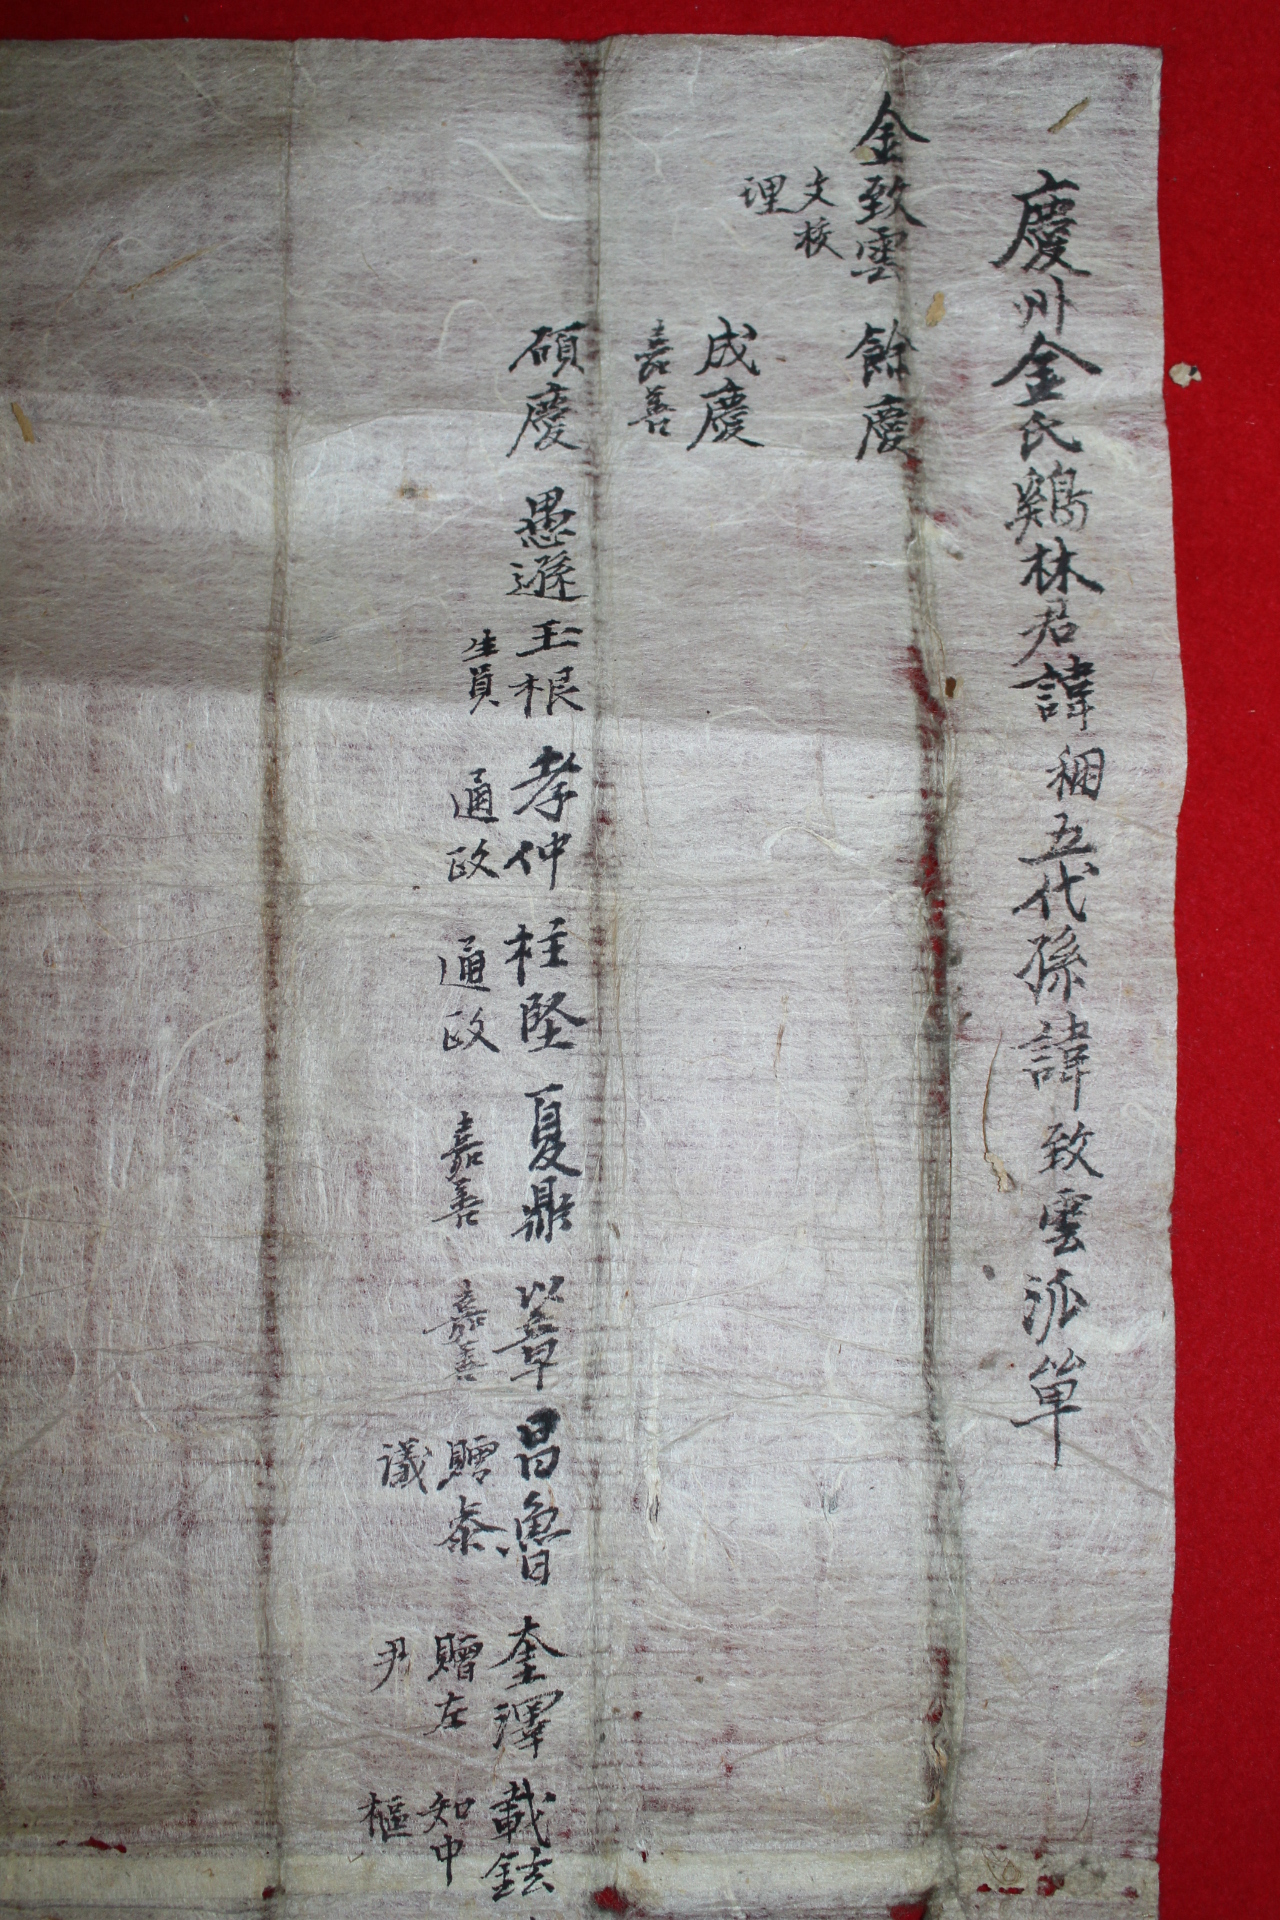 慶州金氏鷄林君諱稛五代孫諱致雲派單
金致雲
文校
理
餘慶
成慶
嘉善
碩慶
愚遜
玉根
生員
孝仲
通政
柱堅
通政
夏鼎
嘉善
以章
嘉善
昌魯
贈參
議
奎澤
贈左
尹
載鉉
知中
樞